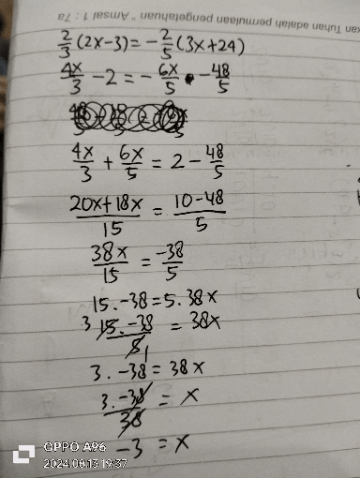 kan Tuhan adalah permulaan pengetahuan " Amsal 1 : 7a
2/3 (2x-3) = -2/5 (3x+24)
4x/3 - 2 = - 6x/5 - 48/5
4x/3 + 6x/5 = 2 - 48/5
20x+18x/15 = 10-48/5
38x/15 = -38/5
15.-38 = 5.38x
3 15.-38/5 1 = 38x
3.-38 = 38x
3.-38/38 = x
-3 = x
OPPO A96
2024.08.13 19:37